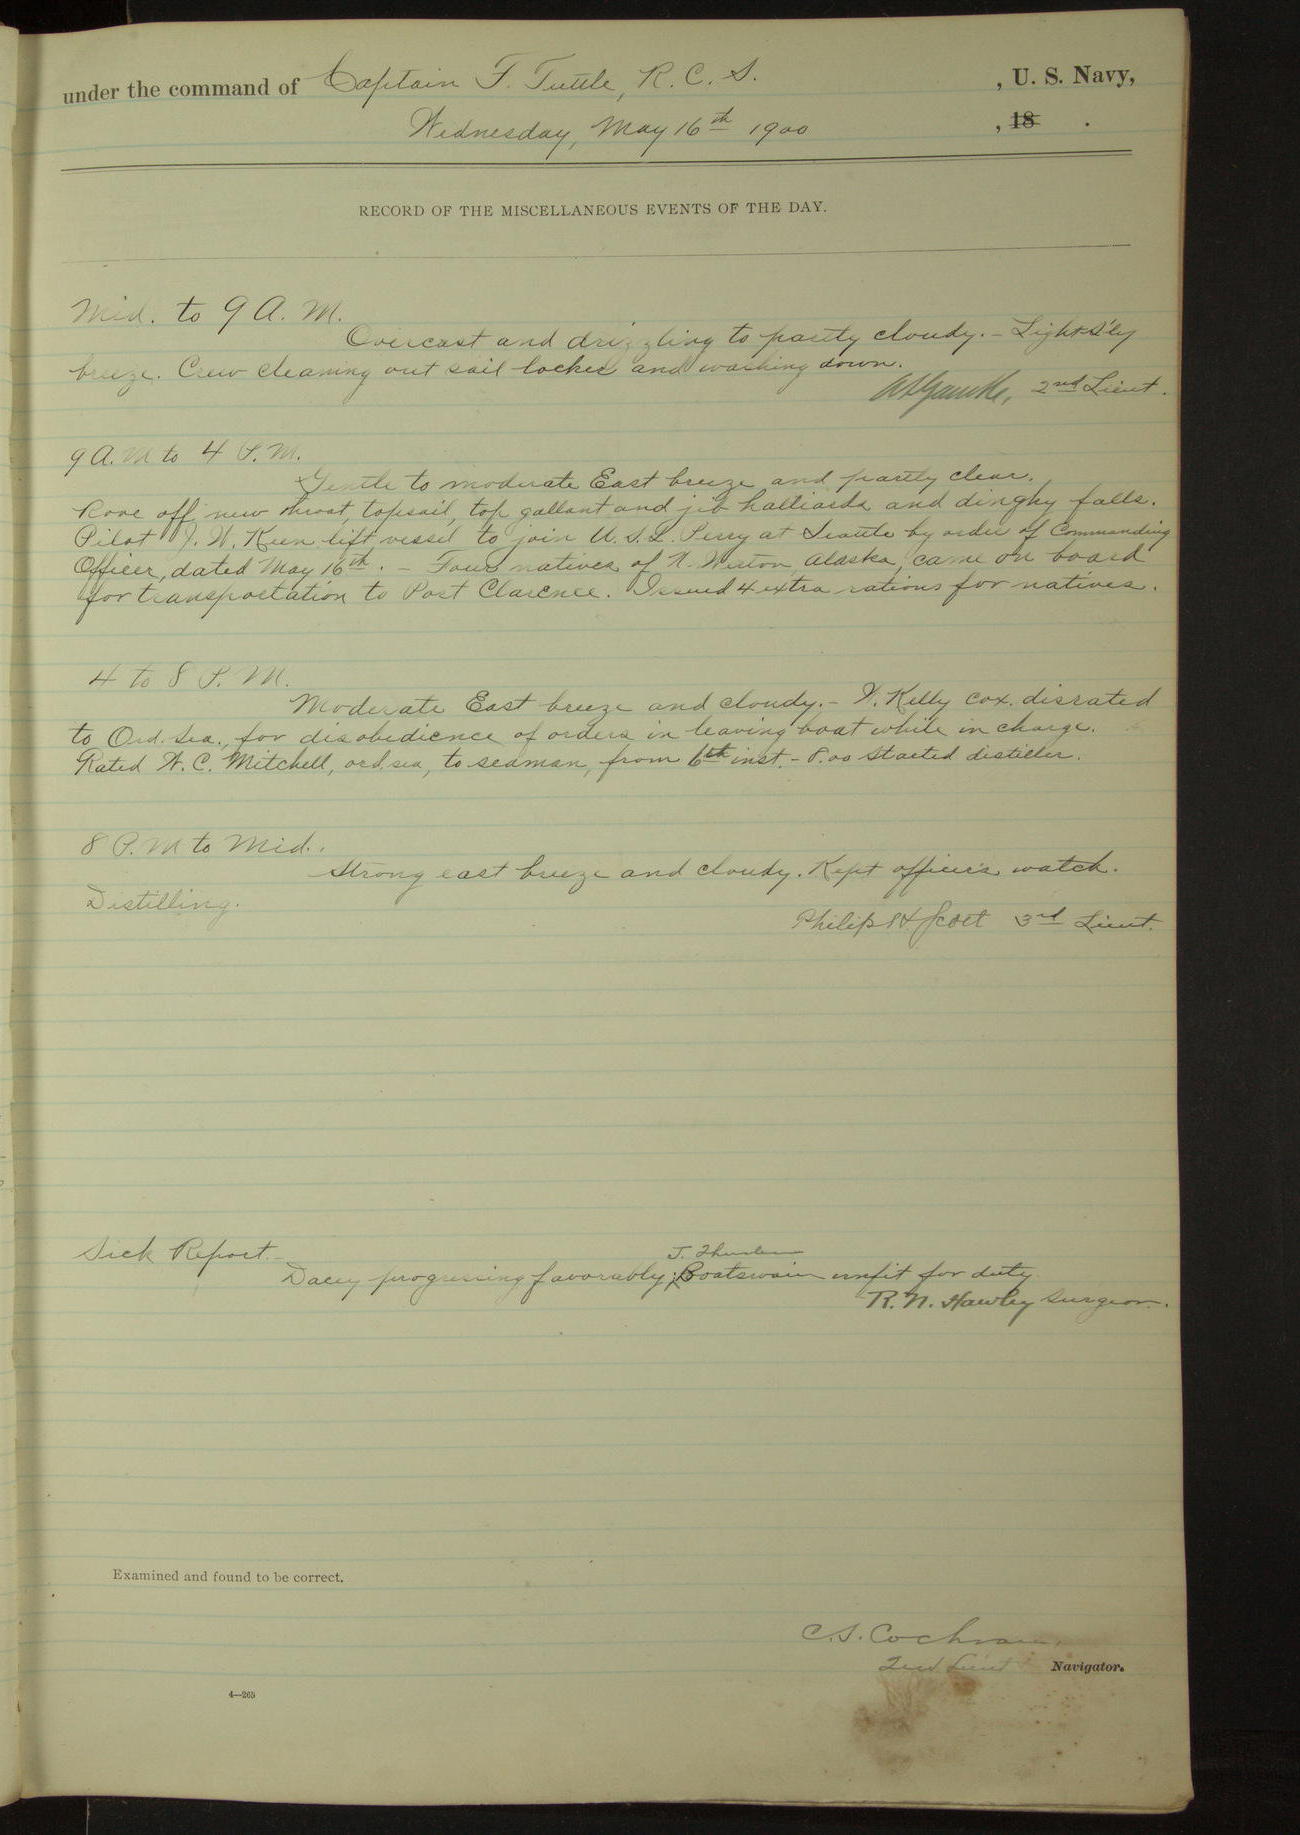 under the command of Captain F. Tuttle, R. C. S. , U. S. Navy,
Wednesday, May 16th 1900 , 18 .
RECORD OF THE MISCELLANEOUS EVENTS OF THE DAY.
Mid. to 9 A. M.
Overcast and drizzling to partly cloudy. – Light S'ly
breeze. Crew cleaning out sail locker and washing down.
2nd Lieut.
9 A. M to 4 P. M.
Gentle to moderate East breeze and partly clear.
Rove off new throat, topsail, top gallant and jib halliards and dinghy falls.
Pilot J. W. Keen left vessel to join U. S. S. Perry at Seattle by order of Commanding
Officer, dated May 16th. – Four natives of Alaska, came on board
for transportation to Port Clarence. Issued 4 extra rations for natives.
4 to 8 P. M.
Moderate East breeze and cloudy. – W. Kelly cox. disrated
to Ord. Sea., for disobedience of orders in leaving boat while in charge.
Rated W. C. Mitchell, ord. sea, to seaman, from 6th inst. – 8.00 Started distiller.
8 P. M to Mid.
Strong east breeze and cloudy. Kept officer's watch.
Distilling.
Philip H Scott 3rd Lieut.
Sick Report. –
J.
Dacey progressing favorably; Boatswain unfit for duty
R. N. Hawley Surgeon.
Examined and found to be correct.
C. S. Cochran,
2nd Lieut Navigator.
4—265